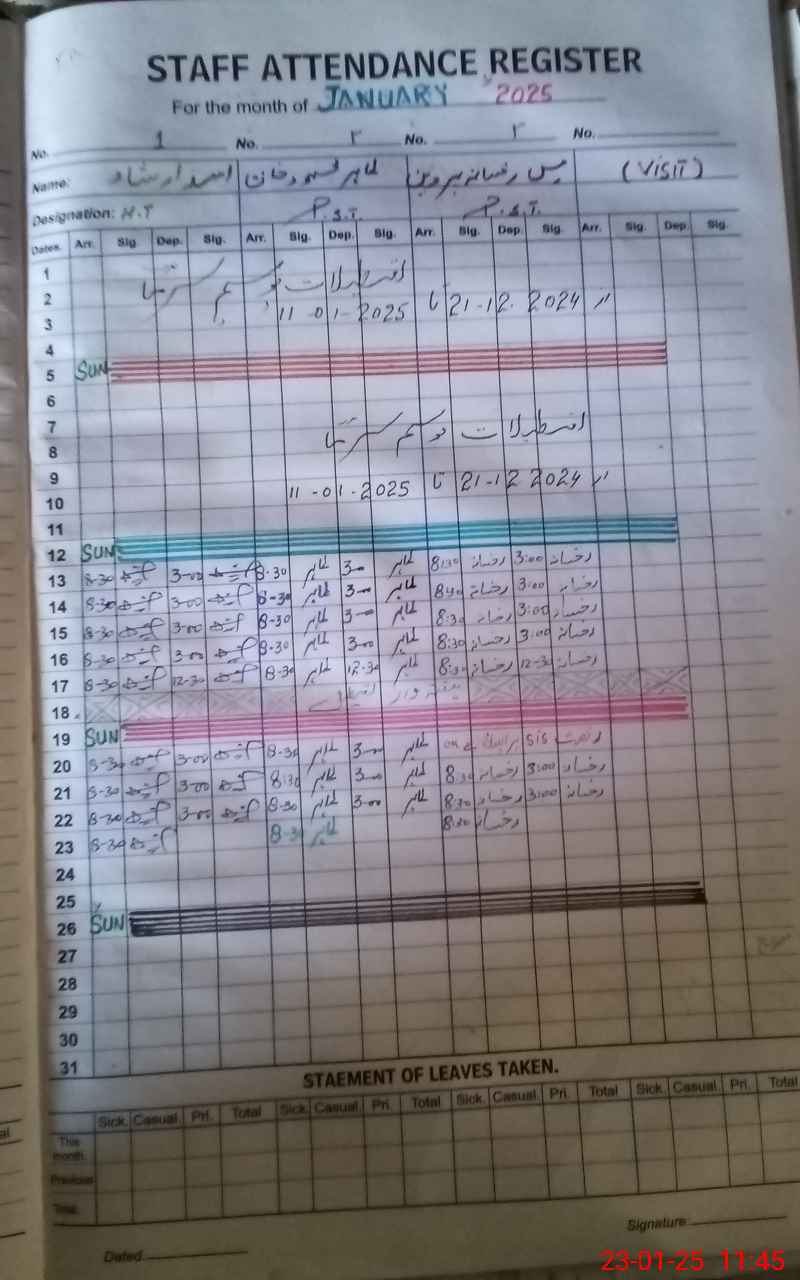 STAFF ATTENDANCE REGISTER
For the month of JANUARY 2025
No. 1 No. ٢ No. No.
Name: اسد ارشاد طاہر محمود خان مس رخسانہ پروین (VISIT)
Designation: P.S.T. P.S.T.
Dates. Arr. Sig. Dep. Sig. Arr. Sig. Dep. Sig. Arr. Sig. Dep. Sig. Arr. Sig. Dep. Sig.
1 تعطیلات موسم سرما
2 از 21-12-2024 تا 11-01-2025
3
4
5 SUN
6
7 تعطیلات موسم سرما
8
9 از 21-12-2024 تا 11-01-2025
10
11
12 SUN
13 8-30 3-00 8-30 طاہر 3-00 طاہر 8:30 رخسانہ 3:00 رخسانہ
14 8-30 3-00 8-30 طاہر 3-00 طاہر رخسانہ 3:00 رخسانہ
15 8-30 3-00 8-30 طاہر 3-00 طاہر 8:30 رخسانہ 3:00 رخسانہ
16 8-30 3-00 8-30 طاہر 3-00 طاہر 8:30 رخسانہ 3:00 رخسانہ
17 8-30 12-30 8-30 طاہر 12-30 طاہر 8:30 رخسانہ 12-30 رخسانہ
18 ہفتہ وار تعطیل
19 SUN
20 8-30 3-00 8-30 طاہر 3-00 طاہر رخصت SIS
21 8-30 3-00 8:30 طاہر 3-00 طاہر 8:30 رخسانہ 3:00 رخسانہ
22 8-30 3-00 8-30 طاہر 3-00 طاہر 8:30 رخسانہ 3:00 رخسانہ
23 8-30 8-30 طاہر 8:30 رخسانہ
24
25
26 SUN
27
28
29
30
31
STAEMENT OF LEAVES TAKEN.
Sick. Casual. Pri. Total Sick. Casual. Pri. Total Sick. Casual. Pri. Total Sick. Casual. Pri. Total
This month.
Previous
Total.
Signature:
Dated.
23-01-25 11:45